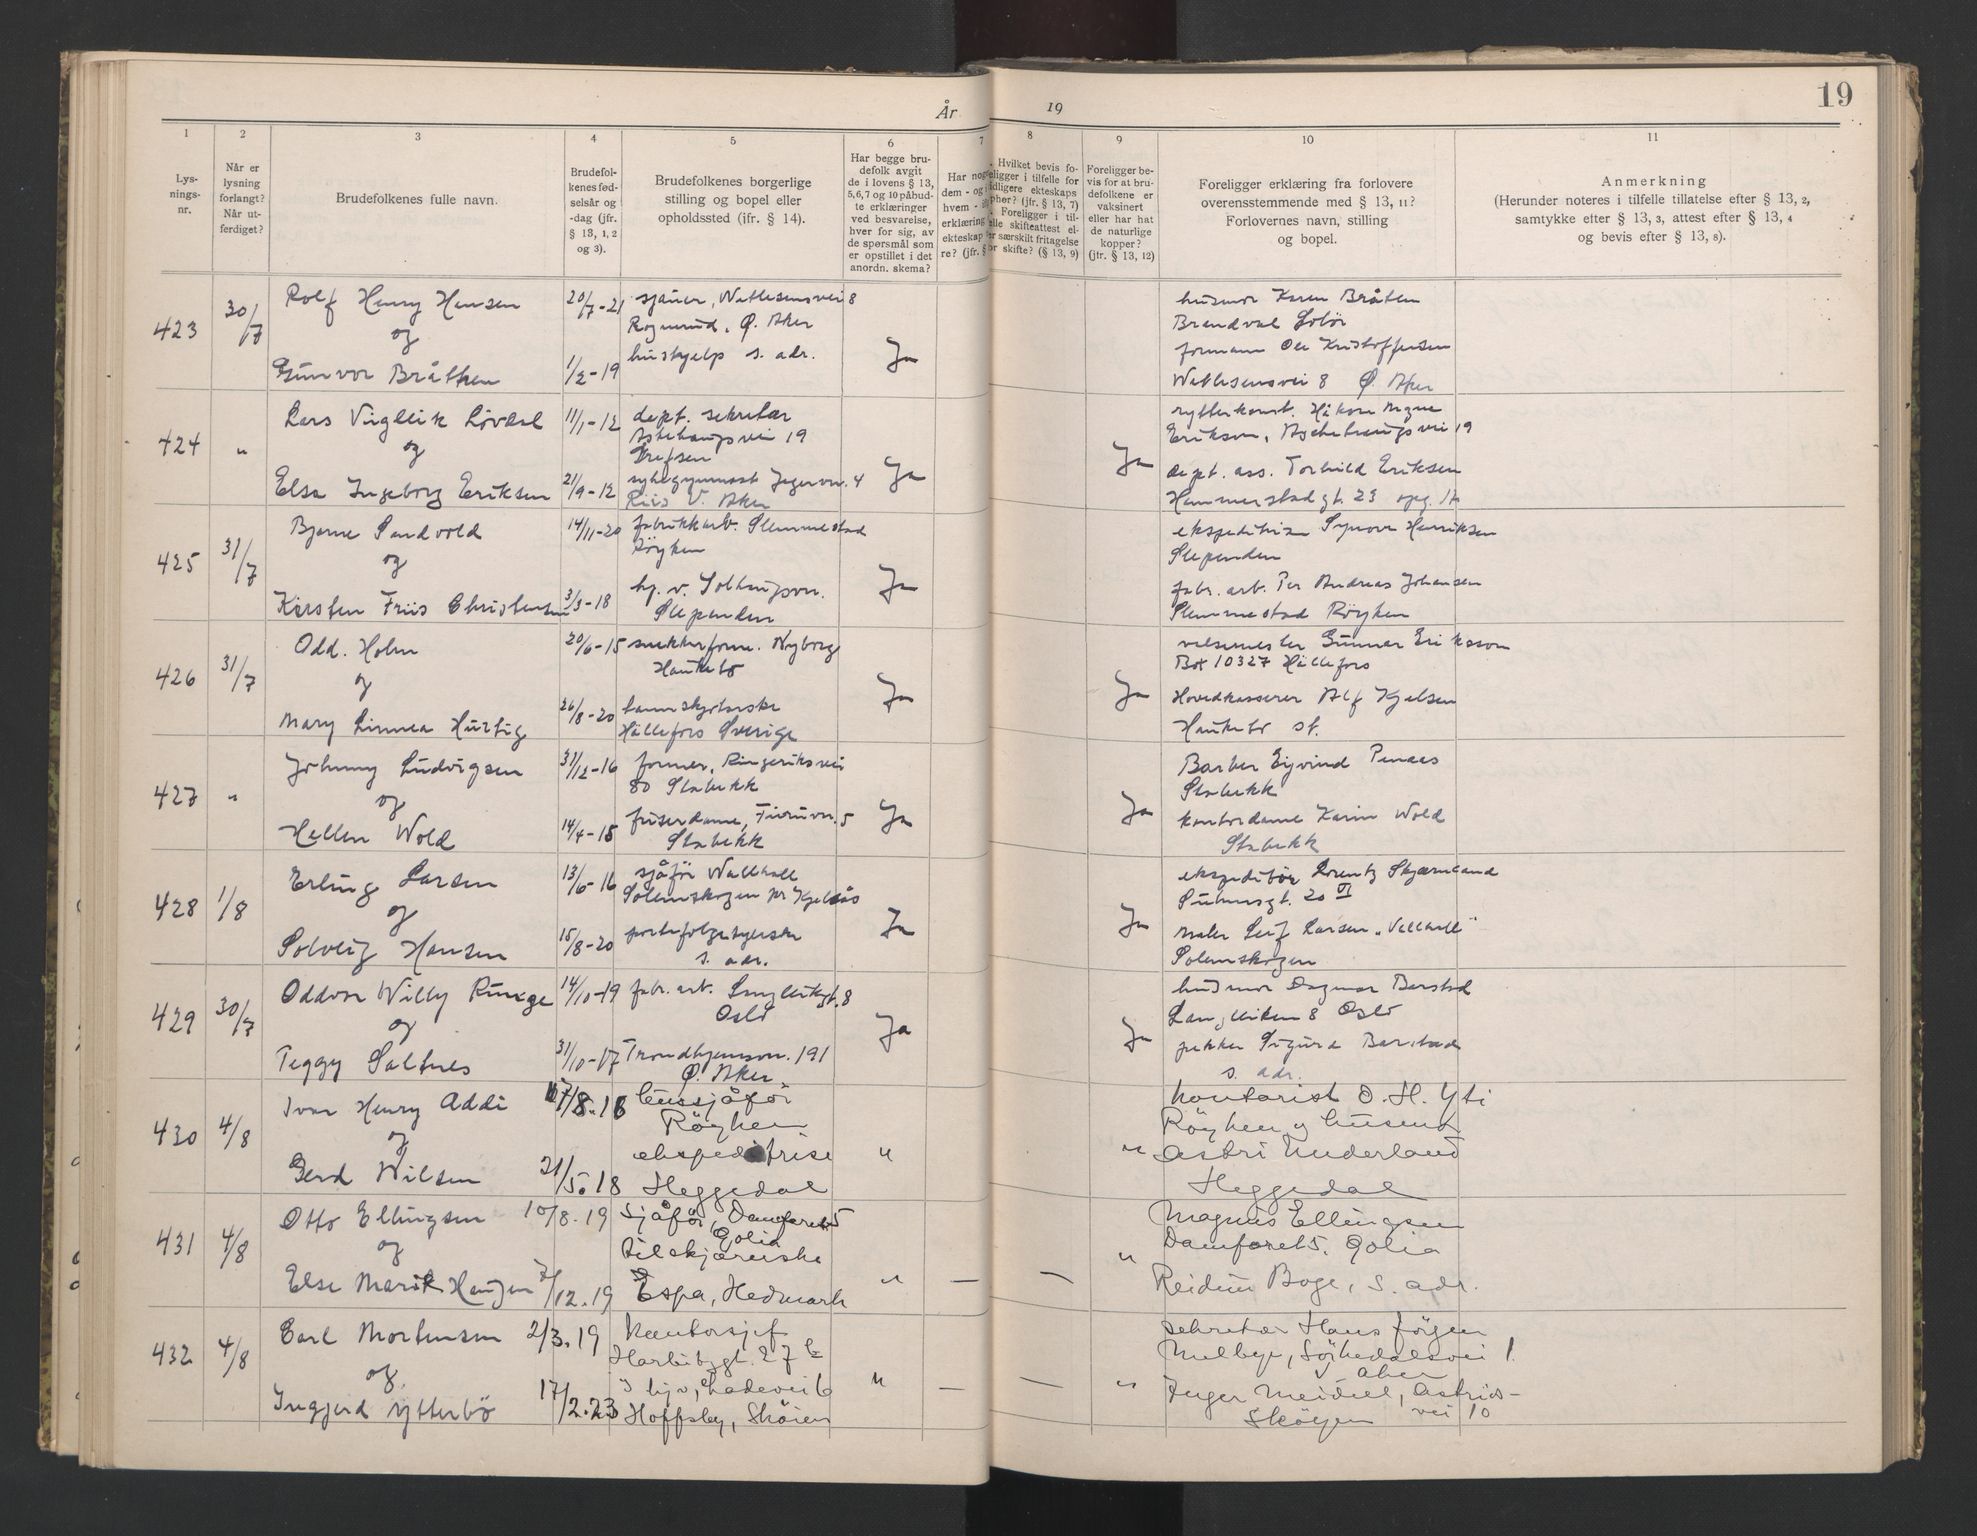 År
19
19
1
2
3
4
5
6
7
8
9
10
11
Lys-
nings-
nr.
Når er
lysning
forlangt?
Når ut-
ferdiget?
Brudefolkenes fulle navn.
Brudefol-
kenes fød-
selsår og
-dag (jfr.
§ 13, 1, 2
og 3).
Brudefolkenes borgerlige
stilling og bopel eller
opholdssted (jfr. § 14).
Har begge bru-
defolk avgit
de i lovens § 13,
5,6,7 og 10 påbud-
te erklæringer
ved besvarelse,
hver for sig, av
de spørsmål som
er opstillet i det
anordn. skema?
Har nog
dem - og i
hvem -
erklæring
ekteskap
re? (jfr. §
Hvilket bevis fo-
religger i tilfelle for
tidligere ekteskaps
ophør? (jfr. § 13, 7)
Foreligger i til-
felle skifteattest el-
ler særskilt fritagelse
for skifte? (§ 13, 9)
Foreligger be-
vis for at bru-
defolkene er
vaksinert
eller har hat
de naturlige
kopper?
(jfr. § 13, 12)
Foreligger erklæring fra forlovere
overensstemmende med § 13, 11?
Forlovernes navn, stilling
og bopel.
Anmerkning
(Herunder noteres i tilfelle tillatelse efter § 13, 2,
samtykke efter § 13, 3, attest efter § 13, 4
og bevis efter § 13, 8).
423
30/7
Rolf Henry Hansen
og
Gunvor Bråthen
20/7-21
1/2-19
sjauer, 8
Rognerud, Ø. Aker
hushjelp s. adr.
Ja
husmor Karen Bråten
Brandval Solör
formann Ole Kristoffersen
8 Ø. Aker
424
"
Lars Viglleik Løvdal
og
Elsa Ingeborg Eriksen
11/1-12
21/9-12
dept. sekretær
19
Grefsen
sykegymnast Jegervn. 4
Riis V. Aker
Ja
Ja
Håkon Magne
Erikson, 19
dept. ass. Torhild Eriksen
Hammerstadgt. 23 opg. 14
425
31/7
Bjarne Sandvold
og
Kirsten Friis Christensen
14/11-20
3/3-18
fabrikkarb. Slemmestad
Röyken
hj. v.
Slependen
Ja
ekspeditrise Synøve Henriksen
Slependen
fabr. arb. Per Andreas Johansen
Slemmestad Röyken
426
31/7
Odd. Holm
og
Mary Linnea Hurtig
20/6-15
26/8-20
snekkerform. Nyborg
Hauketo
Hällefors Sverige
Ja
Ja
valsemester Gunnar Eriksson
Box 10327 Hällefors
Hovedkasserer Alf Kjelsen
Hauketo st.
427
"
Johnny Ludvigsen
og
Hellen Wold
31/12-16
14/4-15
former, Ringeriksvei
80 Stabekk
friserdame, Furuvn. 5
Stabekk
Ja
Ja
Barber Eyvind Penaas
Stabekk
kontordame Karin Wold
Stabekk
428
1/8
Erling Larsen
og
Solveig Hansen
13/6-16
15/8-20
sjåför Wallhall
Solemskogen pr Kjelsås
s. adr.
Ja
Ja
ekspeditör Lorentz Skjæveland
Suhmsgt. 20 VI
maler Leif Larsen "Vallhall"
Solemskogen
429
30/7
Oddvar Willy Runge
og
Peggy Saltnes
14/10-19
31/10-17
fabr. arb. Langlikgt. 8
Oslo
Trondhjemsvn. 191
Ø. Aker
Ja
Ja
husmor Dagmar Barstad
Langliken 8 Oslo
pakker Sigurd Barstad
s. adr.
430
4/8
Ivar Henry Addi
og
Gerd Wilsen
17/8.16
21/5.18
bussjåför
Röyken
ekspeditrise
Heggedal
"
"
kontorist O. H. Yti
Röyken og husmor
Astri Underland
Heggedal
431
4/8
Otto Ellingsen
og
Else Marie Hansen
10/8.19
7/12.19
sjåför, Damfaret 5
Golia
tilskjærerske
Espa, Hedmark
"
—
—
"
Magnus Ellingsen
Damfaret 5. Golia
Reidun Boge, s. adr.
432
4/8
Carl Mortensen
og
Ingjerd Ytterbö
2/3.19
17/2.23
Kontorsjef
Harbitzgt. 27 b
I hj., Ladevei 6
Hoffsby, Sköien
"
—
—
"
sekretær Hans Jörgen
Melbye, Sörkedalsvei 1.
V. Aker
Inger Meidell, Astrids-
vei 10
Sköyen